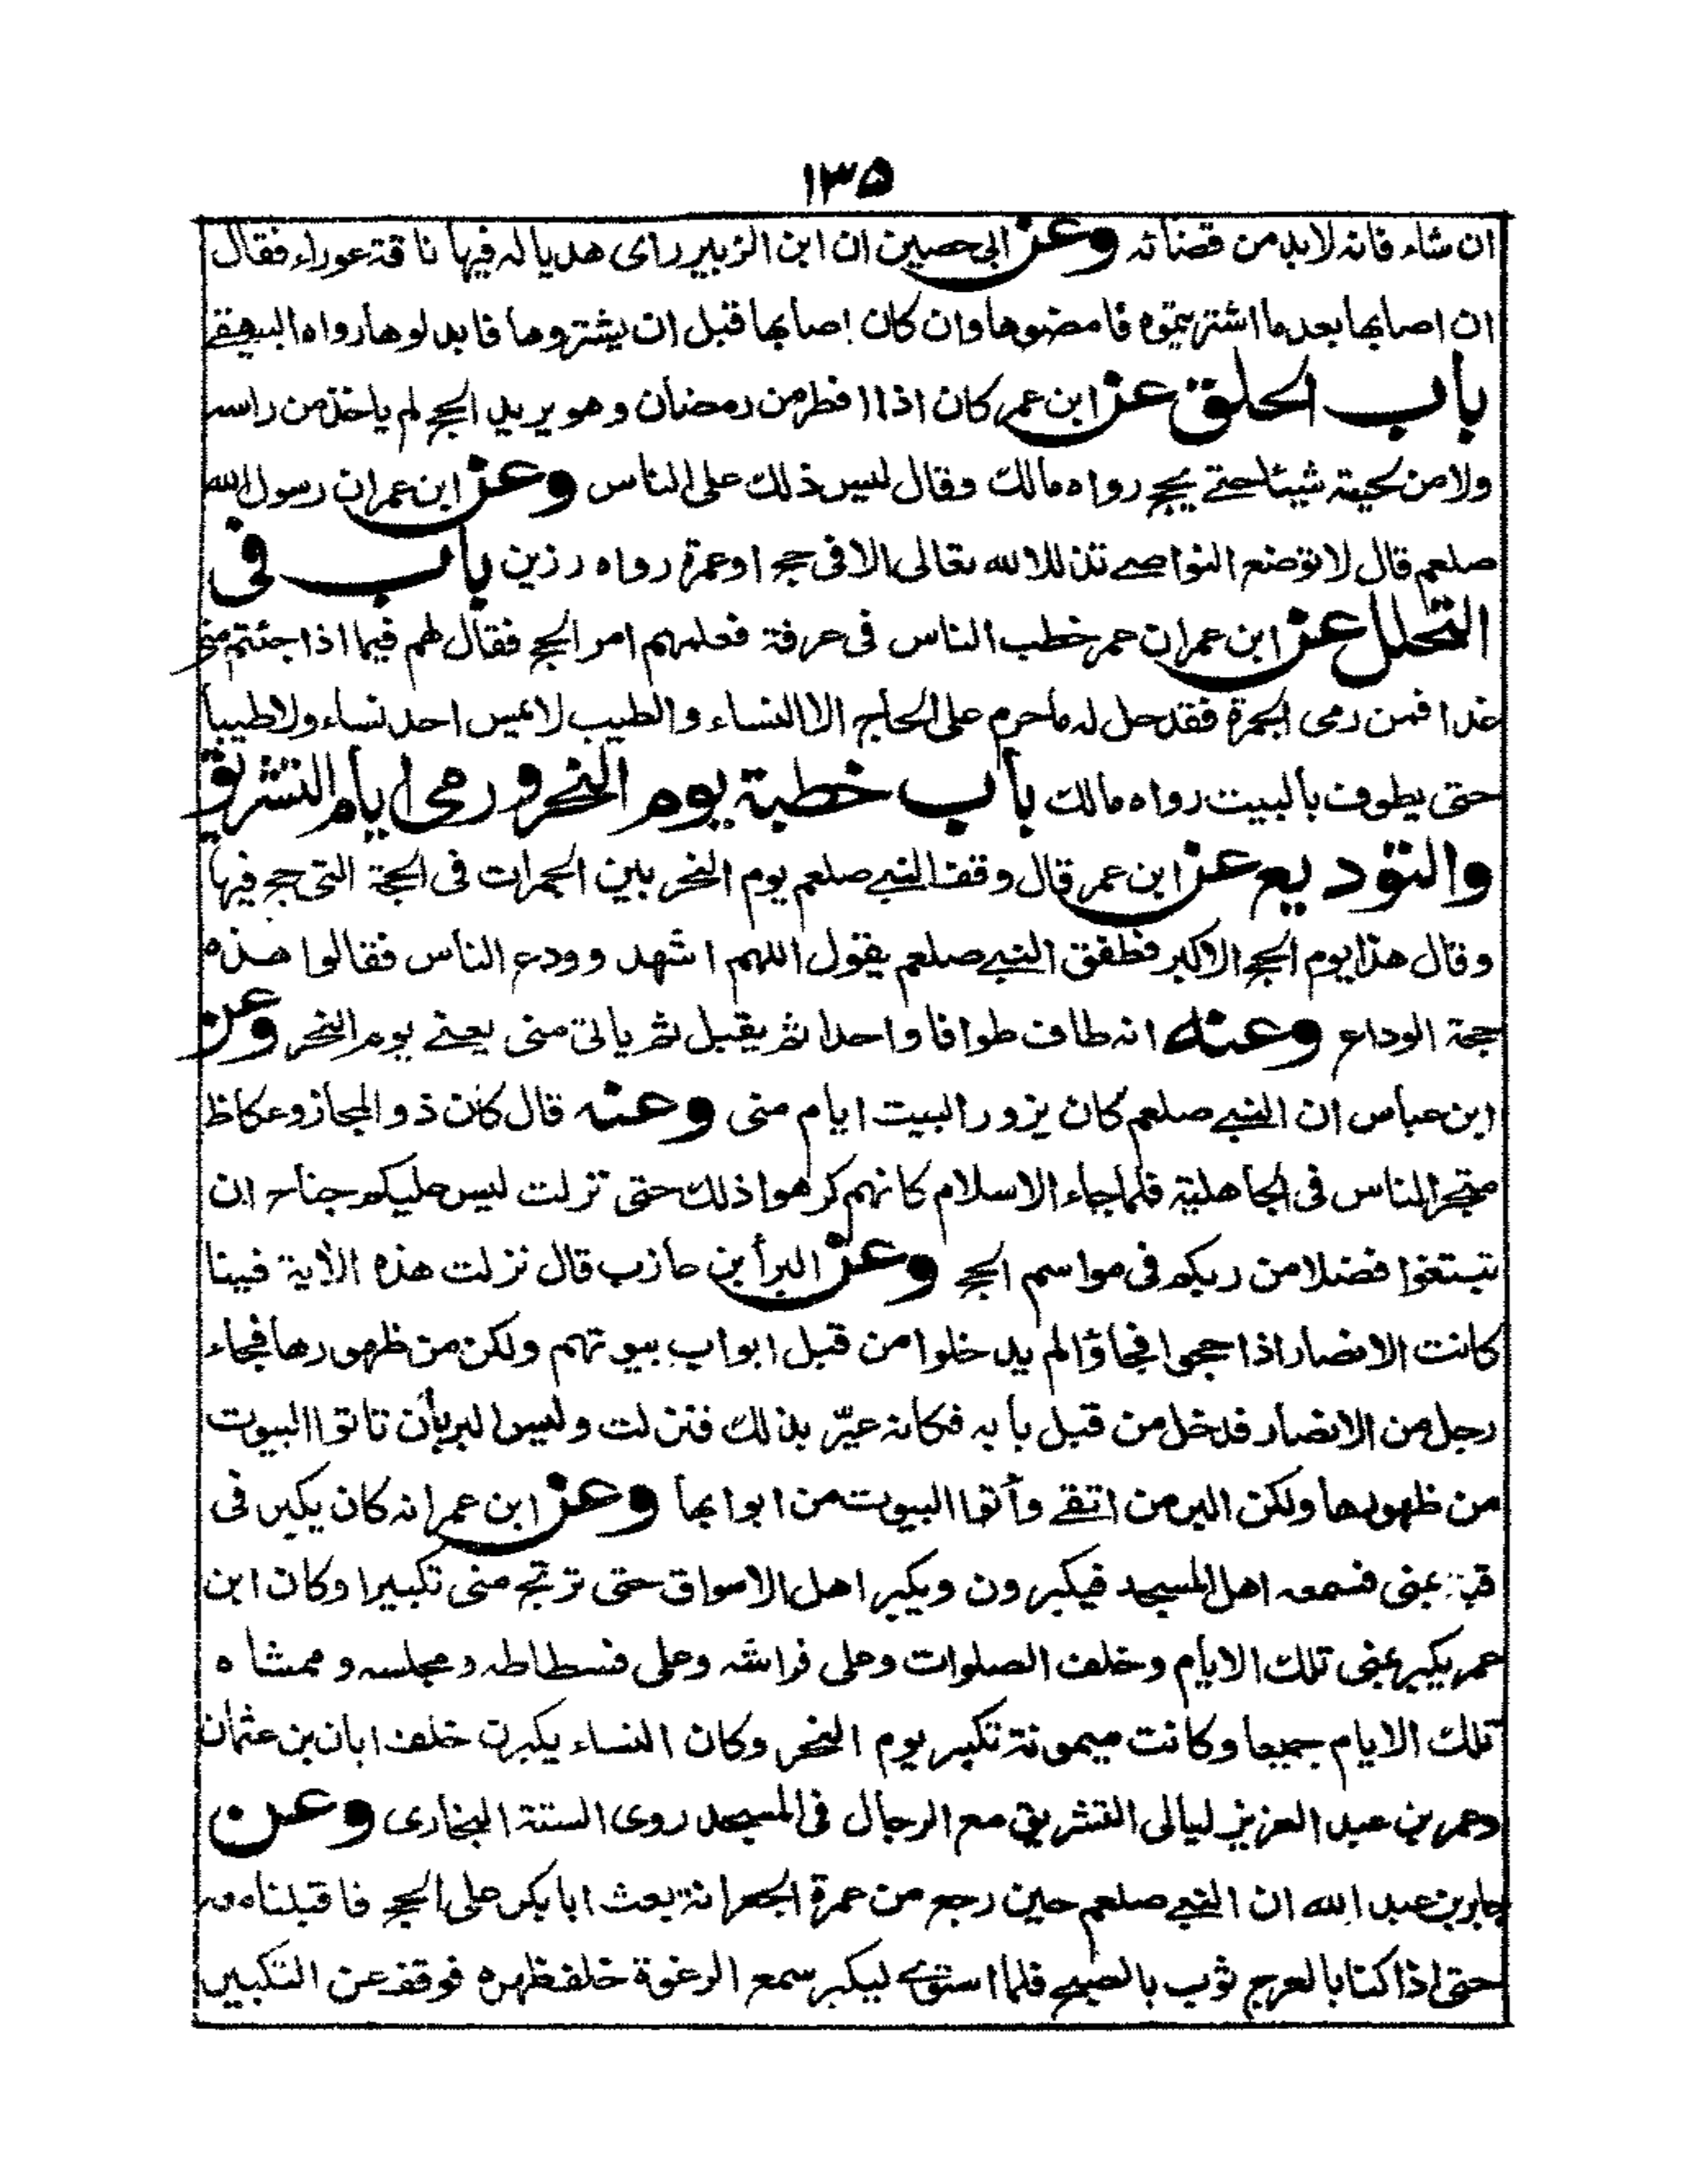 ١٣٥
ان شاء فانه لابد من قضائه وعن ابي حصين ان ابن الزبير راى هديا له فيها ناقة عوراء فقال
ان اصابها بعد ما اشتريتموه فامضوها وان كان اصابها قبل ان يشتروها فابدلوها رواه البيهقے
باب الحلق عن ابن عمر كان اذا افطر من رمضان وهو يريد الحج لم ياخذ من راسه
ولا من لحيته شيئا حتے يحج رواه مالك وقال ليس ذلك على الناس وعن ابن عمر ان رسول الله
صلعم قال لا توضع النواصے تذللا لله تعالى الا فى حج او عمرة رواه رزين باب فى
التحلل عن ابن عمر ان عمر خطب الناس فى عرفة فعلمهم امر الحج فقال لهم فيما اذا جئتم منى
غدا فمن رمى الجمرة فقد حل له ما حرم على الحاج الا النساء والطيب لا يمس احد نساء ولا طيبا
حتى يطوف بالبيت رواه مالك باب خطبة يوم النحر ورمى ايام التشريق
والتوديع عن ابن عمر قال وقف النبے صلعم يوم النحر بين الجمرات فى الحجة التى حج فيها
وقال هذا يوم الحج الاكبر فطفق النبے صلعم يقول اللهم اشهد وودع الناس فقالوا هذه
حجة الوداع وعنه انه طاف طوافا واحدا ثم يقبل ثم ياتى منى يعنے يوم النحر وعن
ابن عباس ان النبے صلعم كان يزور البيت ايام منى وعنه قال كان ذو المجاز وعكاظ
متجر الناس فى الجاهلية فلما جاء الاسلام كانهم كرهوا ذلك حتى نزلت ليس عليكم جناح ان
تبتغوا فضلا من ربكم فى مواسم الحج وعن البرأ بن عازب قال نزلت هذه الأية فينا
كانت الانصار اذا حجوا فجاؤا لم يدخلوا من قبل ابواب بيوتهم ولكن من ظهورها فجاء
رجل من الانصار فدخل من قبل بابه فكانه عيّر بذلك فنزلت وليس البر بأن تاتوا البيوت
من ظهورها ولكن البر من اتقے وأتوا البيوت من ابوابها وعن ابن عمر انه كان يكبر فى
قبته بمنى فسمعه اهل المسجد فيكبرون ويكبر اهل الاسواق حتى ترتج منى تكبيرا وكان ابن
عمر يكبر بمنى تلك الايام وخلف الصلوات وعلى فراشه وعلى فسطاطه ومجلسه وممشاه
تلك الايام جميعا وكانت ميمونة تكبر يوم النحر وكان النساء يكبرن خلف ابان بن عثمان
وعمر بن عبد العزيز ليالى التشريق مع الرجال فى المسجد روى الستة البخارى وعن
جابر بن عبد الله ان النبے صلعم حين رجع من عمرة الجعرانة بعث ابا بكر على الحج فاقبلنا معه
حتى اذا كنا بالعرج ثوب بالصبح فلما استوے ليكبر سمع الرغوة خلف ظهره فوقف عن التكبير